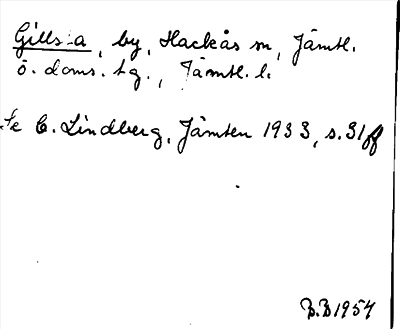 Gillsta, by, Hackås sn, Jämtl.
ö. doms. tg., Jämtl. l.
Se C. Lindberg, Jämten 1933, s. 31ff
B.B 1954